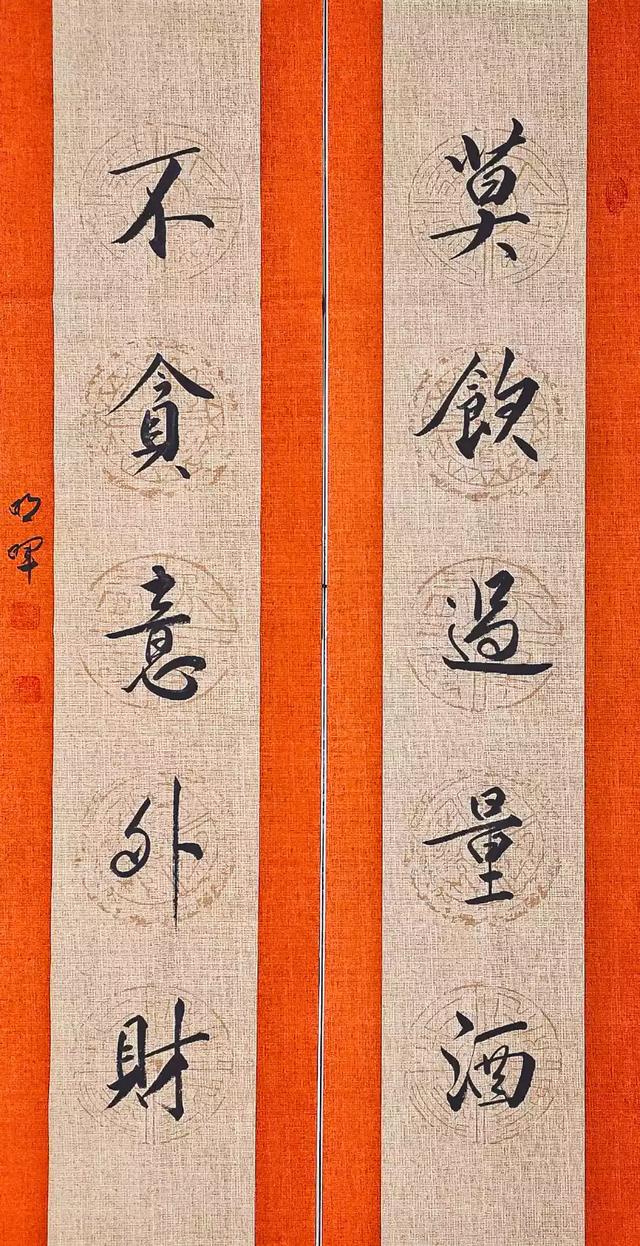 莫飲過量酒
不貪意外財
明暉